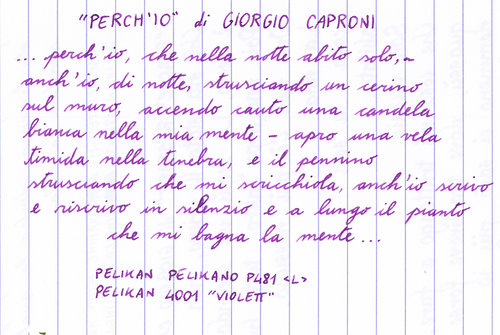 "PERCH'IO" di GIORGIO CAPRONI
... perch'io, che nella notte abito solo,-
anch'io, di notte, strusciando un cerino
sul muro, accendo cauto una candela
bianca nella mia mente - apro una vela
timida nella tenebra, e il pennino
strusciando che mi scricchiola, anch'io scrivo
e riscrivo in silenzio e a lungo il pianto
che mi bagna la mente...
PELIKAN PELIKANO P481 <L>
PELIKAN 4001 "VIOLETT"